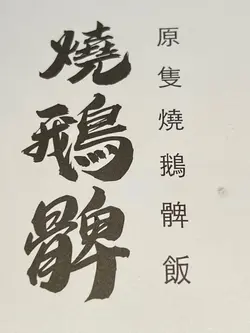 原隻燒鵝髀飯
燒鵝髀